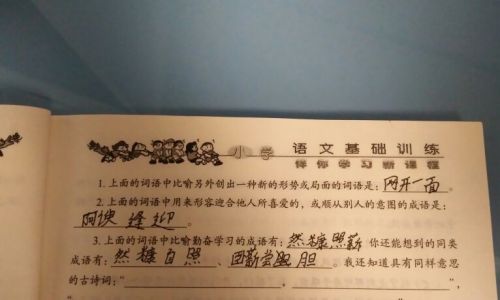 小学 语文基础训练
伴你学习新课程
1.上面的词语中比喻另外创出一种新的形势或局面的词语是:网开一面。
2.上面的词语中用来形容迎合他人所喜爱的,或顺从别人的意图的成语是:
阿谀逢迎。
3.上面的词语中比喻勤奋学习的成语有:然糠照薪 你还能想到的同类
成语有:然糠自照、胆。我还知道具有同样意思
的古诗词:“ , 。”